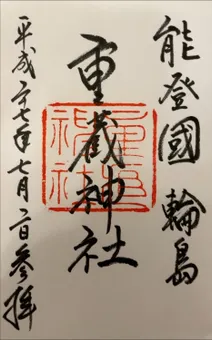 能登國 輪島
重蔵神社
平成二十七年七月二日参拝